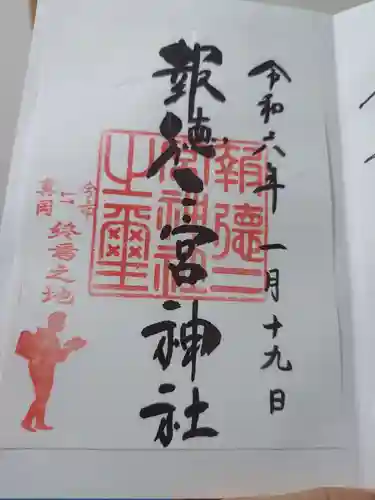 令和六年一月十九日
報徳二宮神社
報徳二
宮神社
之璽
終焉之地
真岡